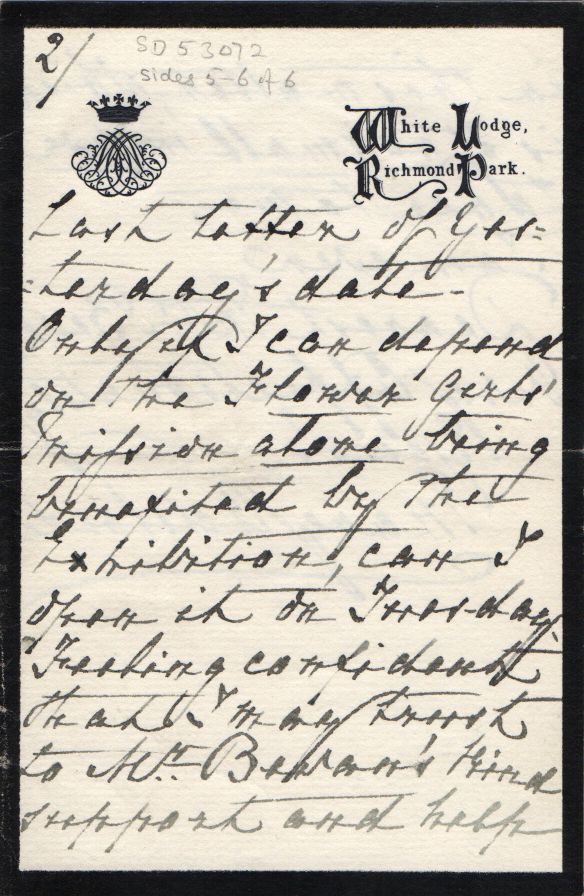 2/
SD 53072
sides 5-6 of 6
White Lodge,
Richmond Park.
last letter of Yes=
=terday's date -
Only if I can depend
on the Flower Girls'
Mission alone being
benefited by the
Exhibition, can I
open it on Tuesday.
Feeling confident
that I may trust
to Mr. Bevan's kind
support and help